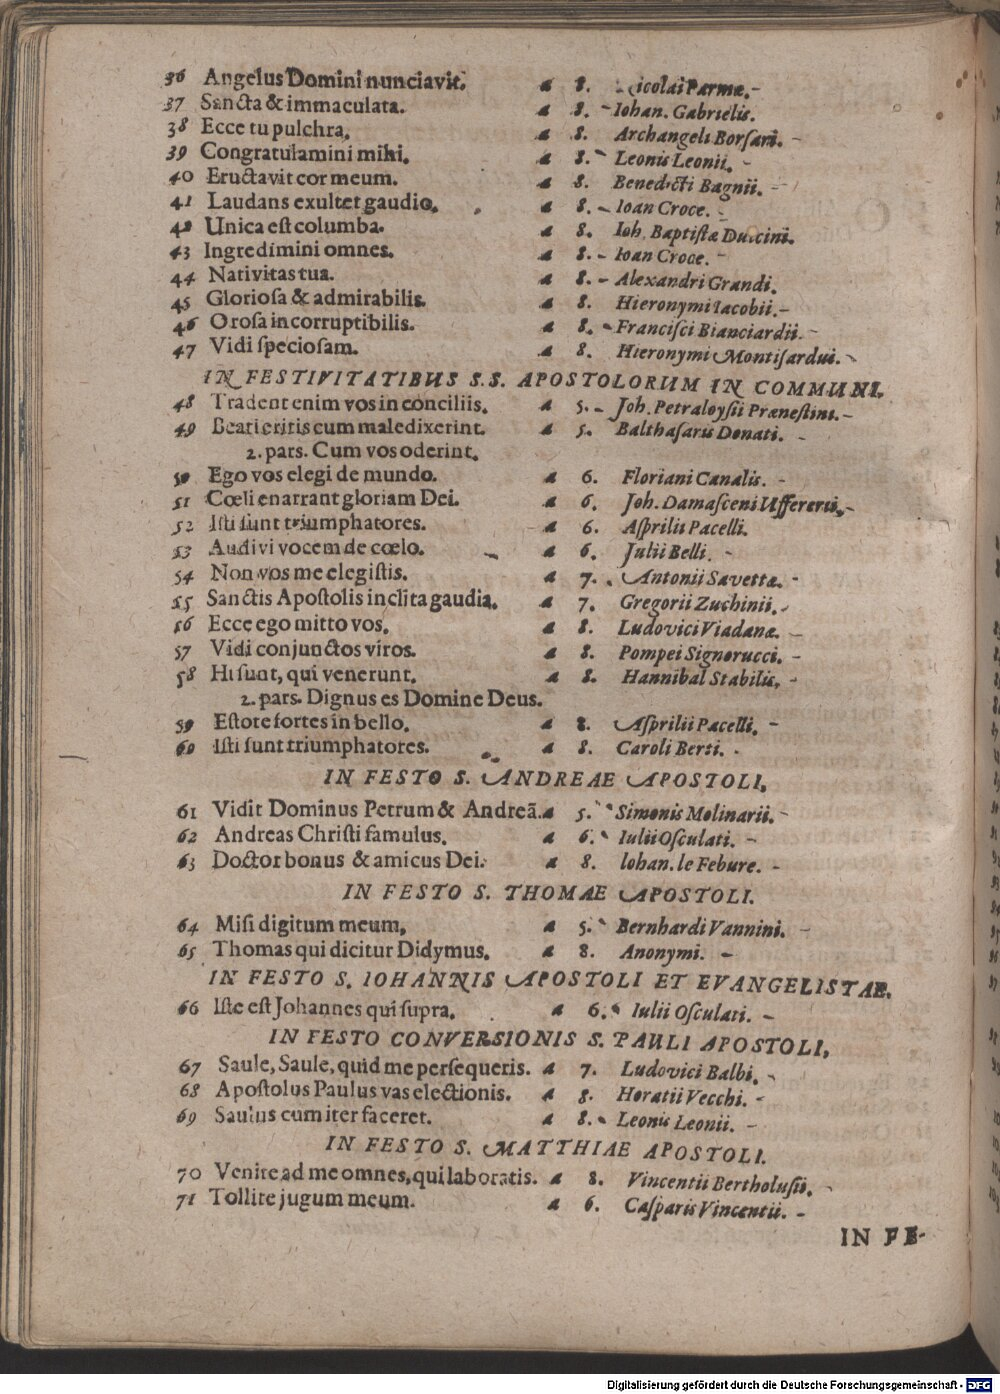 36 Angelus Domini nunciavit. a 8. Nicolai Parmæ.
37 Sancta & immaculata. a 8. Iohan. Gabrielis.
38 Ecce tu pulchra. a 8. Archangeli Borsari.
39 Congratulamini mihi. a 8. Leonis Leonii.
40 Eructavit cor meum. a 8. Benedicti Bagnii.
41 Laudans exultet gaudio. a 8. Ioan Croce.
42 Unica est columba. a 8. Ioh. Baptistæ Dulcini.
43 Ingredimini omnes. a 8. Ioan Croce.
44 Nativitas tua. a 8. Alexandri Grandi.
45 Gloriosa & admirabilis. a 8. Hieronymi Iacobii.
46 O rosa incorruptibilis. a 8. Francisci Bianciardii.
47 Vidi speciosam. a 8. Hieronymi Montisardui.
IN FESTIVITATIBUS S.S. APOSTOLORUM IN COMMUNI.
48 Tradent enim vos in conciliis. a 5. Joh. Petraloysii Prænestini.
49 Beati eritis cum maledixerint. a 5. Balthasaris Donati.
2. pars. Cum vos oderint.
50 Ego vos elegi de mundo. a 6. Floriani Canalis.
51 Cœli enarrant gloriam Dei. a 6. Joh. Damasceni Ufferern.
52 Isti sunt triumphatores. a 6. Asprilii Pacelli.
53 Audivi vocem de cœlo. a 6. Julii Belli.
54 Non vos me elegistis. a 7. Antonii Savettæ.
55 Sanctis Apostolis inclita gaudia. a 7. Gregorii Zuchinii.
56 Ecce ego mitto vos. a 8. Ludovici Viadanæ.
57 Vidi conjunctos viros. a 8. Pompei Signorucci.
58 Hi sunt, qui venerunt. a 8. Hannibal Stabilis.
2. pars. Dignus es Domine Deus.
59 Estote fortes in bello. a 8. Asprilii Pacelli.
60 Isti sunt triumphatores. a 8. Caroli Berti.
IN FESTO S. ANDREAE APOSTOLI.
61 Vidit Dominus Petrum & Andreã. a 5. Simonis Molinarii.
62 Andreas Christi famulus. a 6. Iulii Osculati.
63 Doctor bonus & amicus Dei. a 8. Iohan. le Febure.
IN FESTO S. THOMAE APOSTOLI.
64 Misi digitum meum. a 5. Bernhardi Vannini.
65 Thomas qui dicitur Didymus. a 8. Anonymi.
IN FESTO S. IOHANNIS APOSTOLI ET EVANGELISTAE.
66 Iste est Johannes qui supra. a 6. Iulii Osculati.
IN FESTO CONVERSIONIS S. PAULI APOSTOLI.
67 Saule, Saule, quid me persequeris. a 7. Ludovici Balbi.
68 Apostolus Paulus vas electionis. a 8. Horatii Vecchi.
69 Saulus cum iter faceret. a 8. Leonis Leonii.
IN FESTO S. MATTHIAE APOSTOLI.
70 Venite ad me omnes, qui laboratis. a 8. Vincentii Bertholusii.
71 Tollite jugum meum. a 6. Casparis Vincentii.
IN FE-
Digitalisierung gefördert durch die Deutsche Forschungsgemeinschaft - DFG